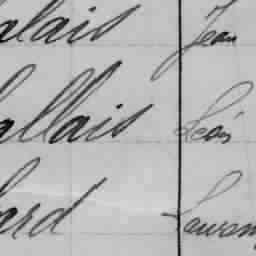 alais Jean
allais Léon
ard Lauren